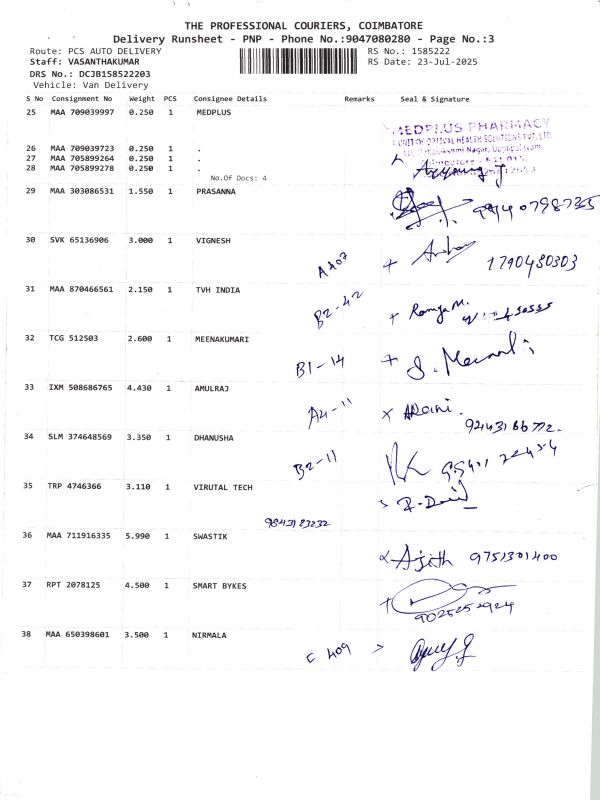 THE PROFESSIONAL COURIERS, COIMBATORE
Delivery Runsheet - PNP - Phone No.:9047080280 - Page No.:3
Route: PCS AUTO DELIVERY RS No.: 1585222
Staff: VASANTHAKUMAR RS Date: 23-Jul-2025
DRS No.: DCJB158522203
Vehicle: Van Delivery
S No Consignment No Weight PCS Consignee Details Remarks Seal & Signature
25 MAA 709039997 0.250 1 MEDPLUS
MEDPLUS PHARMACY
26 MAA 709039723 0.250 1 .
27 MAA 705899264 0.250 1 .
28 MAA 705899278 0.250 1 .
No.Of Docs: 4
29 MAA 303086531 1.550 1 PRASANNA
30 SVK 65136906 3.000 1 VIGNESH
A407 + 1790480303
31 MAA 870466561 2.150 1 TVH INDIA
B2-42 + Ramya M.
32 TCG 512503 2.600 1 MEENAKUMARI
B1-14 +
33 IXM 508686765 4.430 1 AMULRAJ
A4-11 x
9244316 6772.
34 SLM 374648569 3.350 1 DHANUSHA
B2-11
35 TRP 4746366 3.110 1 VIRUTAL TECH
9843123232
36 MAA 711916335 5.990 1 SWASTIK
Ajith 9751301400
37 RPT 2078125 4.500 1 SMART BYKES
9025252924
38 MAA 650398601 3.500 1 NIRMALA
C 409